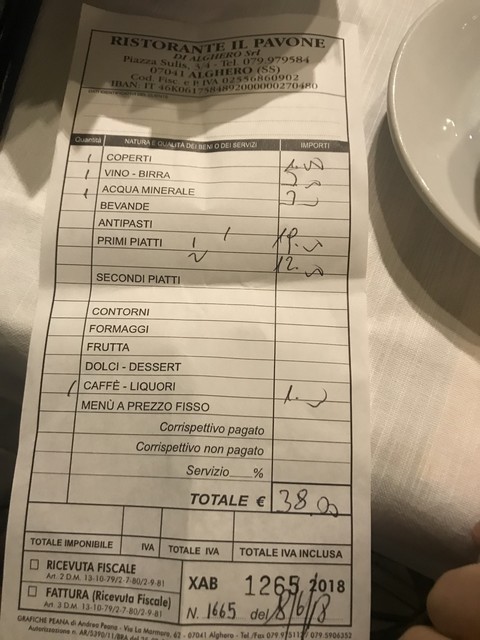 RISTORANTE IL PAVONE
DI ALGHERO Srl
Piazza Sulis, 3/4 - Tel. 079.979584
07041 ALGHERO (SS)
Cod. Fisc. e P. IVA 02556860902
IBAN: IT 46K0617584892000000270480
Quantità NATURA E QUALITÀ DEI BENI O DEI SERVIZI IMPORTI
1 COPERTI
1 VINO - BIRRA
1 ACQUA MINERALE
BEVANDE
ANTIPASTI
PRIMI PIATTI
12.00
SECONDI PIATTI
CONTORNI
FORMAGGI
FRUTTA
DOLCI - DESSERT
1 CAFFÈ - LIQUORI
MENÙ A PREZZO FISSO
Corrispettivo pagato
Corrispettivo non pagato
Servizio %
TOTALE € 38.00
TOTALE IMPONIBILE IVA TOTALE IVA TOTALE IVA INCLUSA
RICEVUTA FISCALE
Art. 2 D.M. 13-10-79/2-7-80/2-9-81
FATTURA (Ricevuta Fiscale)
Art. 3 D.M. 13-10-79/2-7-80/2-9-81
XAB 1265 2018
N. 1665 del 8/6/18
GRAFICHE PEANA di Andrea Peana - Via La Marmora, 62 - 07041 Alghero - Tel./Fax 079.5906352